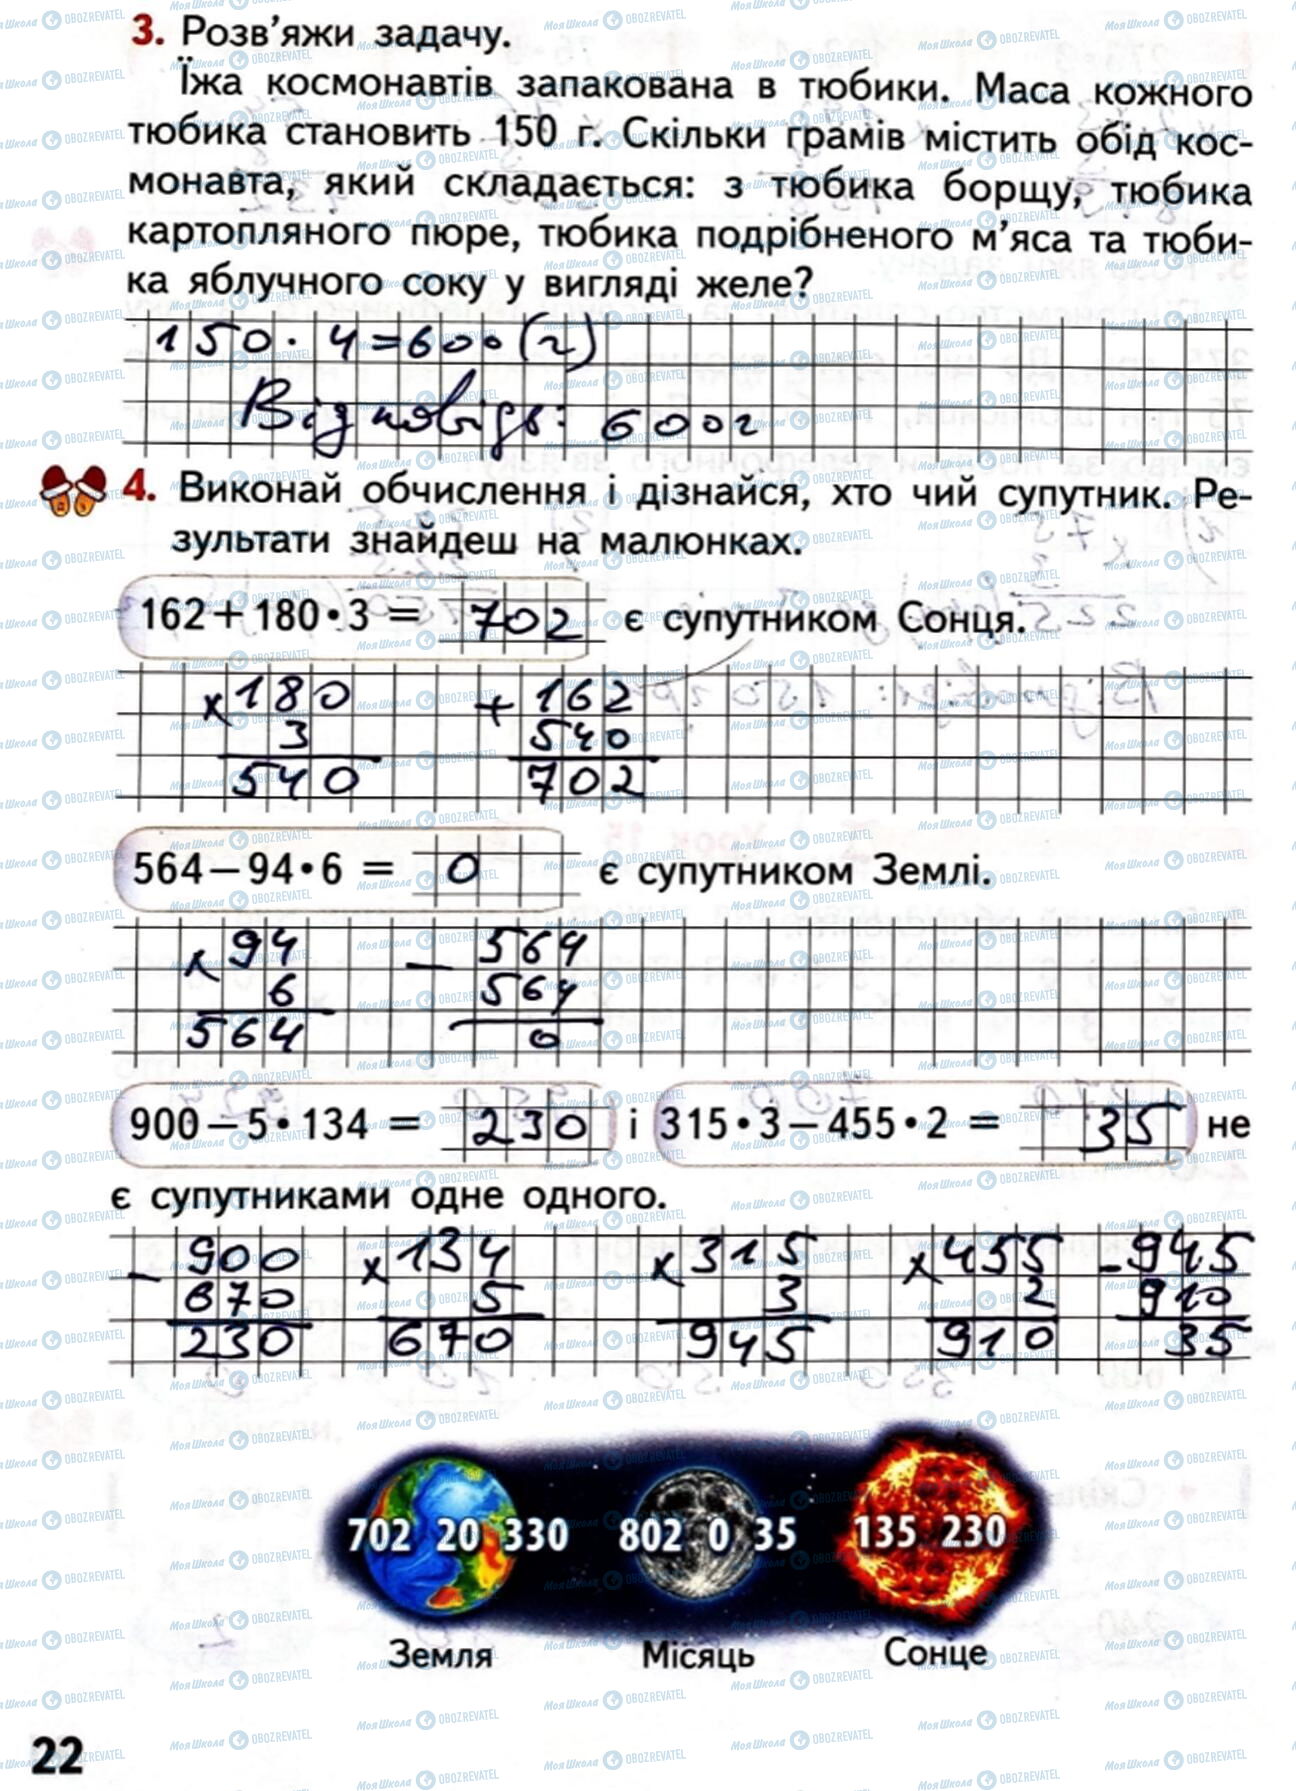 3. Розв'яжи задачу.
Їжа космонавтів запакована в тюбики. Маса кожного
тюбика становить 150 г. Скільки грамів містить обід кос-
монавта, який складається: з тюбика борщу, тюбика
картопляного пюре, тюбика подрібненого м'яса та тюби-
ка яблучного соку у вигляді желе?
150 · 4 = 600 (г)
Відповідь: 600г
4. Виконай обчислення і дізнайся, хто чий супутник. Ре-
зультати знайдеш на малюнках.
162+180•3 = 702 є супутником Сонця.
× 180 + 162
3 540
540 702
564−94•6 = 0 є супутником Землі.
× 94 − 564
6 564
564 0
900−5•134 = 230 і 315•3−455•2 = 35 не
є супутниками одне одного.
− 900 × 134 × 315 × 455 − 945
670 5 3 2 910
230 670 945 910 35
702 20 330 802 0 35 135 230
Земля Місяць Сонце
22
МояШкола OBOZREVATEL